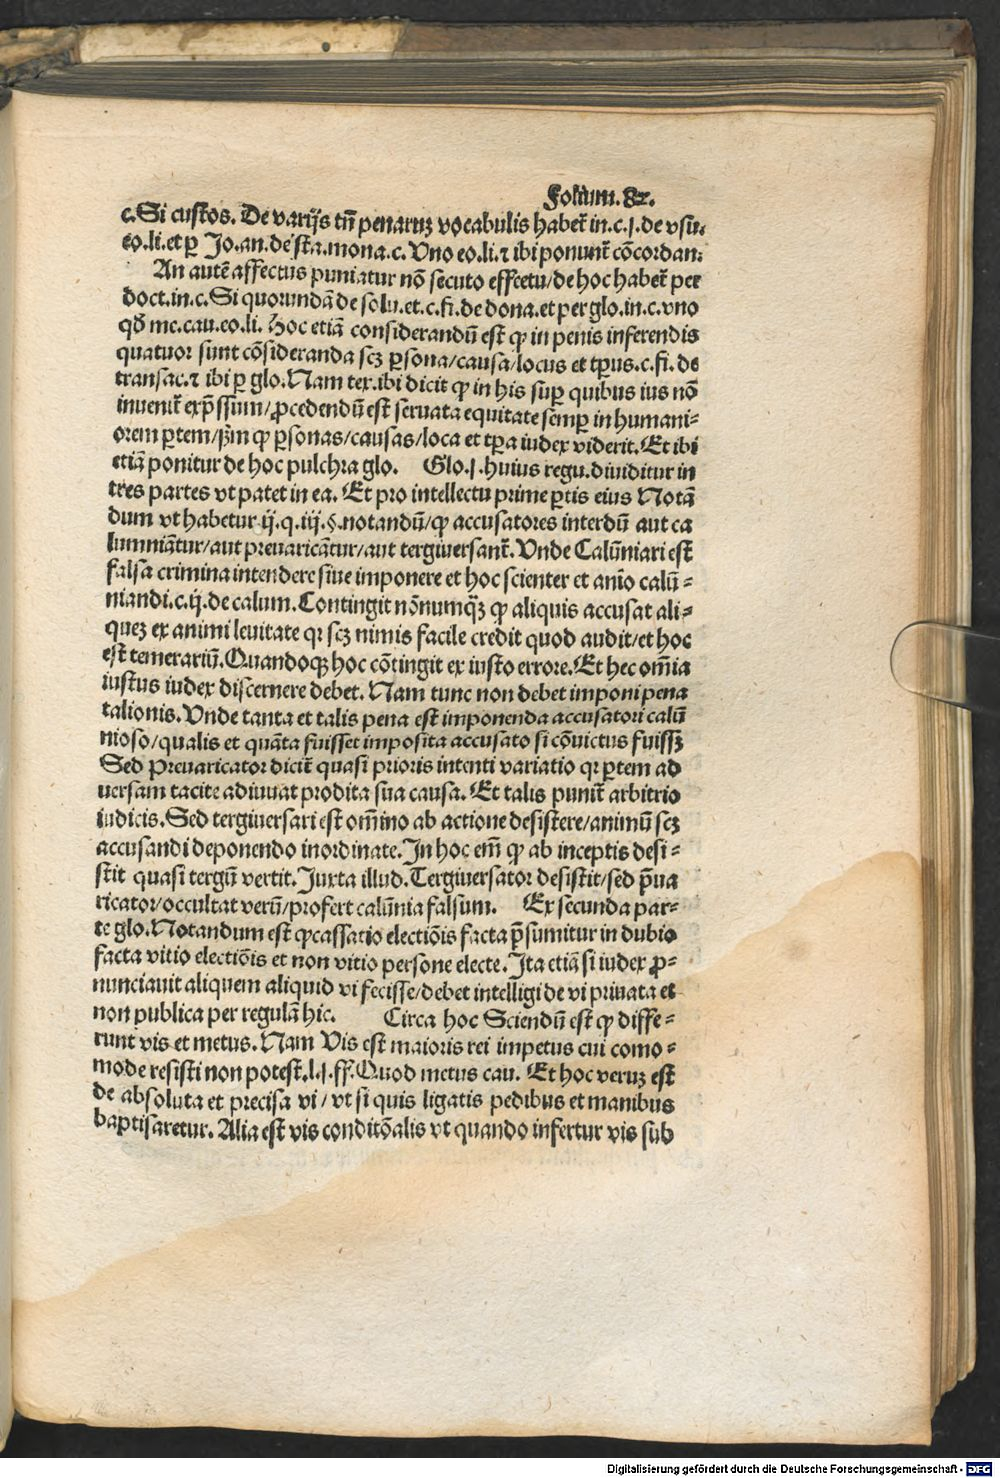 Foliũm. 82.
c. Si custos. De varijs tñ penaruʒ vocabulis habet̃ in. c. j. de vsu.
eo. li. et ꝑ Jo. an. de sta. mona. c. Vno eo. li. ⁊ ibi ponunt̃ cõcordan.
An autẽ affectus puniatur nõ secuto effectu/de hoc habet̃ per
doct. in. c. Si quorundã de solu. et. c. fi. de dona. et per glo. in. c. vno
qđ mc. cau. eo. li. Hoc etiã considerandũ est ꝙ in penis inferendis
quatuor sunt cõsideranda scʒ ꝑsona/causa/locus et tp̃us. c. fi. de
transac. ⁊ ibi ꝑ glo. Nam tex. ibi dicit ꝙ in his suꝑ quibus ius nõ
invenit̃ exp̃ssum/ꝓcedendũ est servata equitate semꝑ in humani⸗
orem ꝑtem/ẜm ꝙ ꝑsonas/causas/loca et tp̃a iudex viderit. Et ibi
etiã ponitur de hoc pulchra glo. Glo. j. huius regu. dividitur in
tres partes vt patet in ea. Et pro intellectu prime ꝑtis eius Notã
dum vt habetur ij. q. iij. §. notandũ/ꝙ accusatores interdũ aut ca
lumniãtur/aut prevaricãtur/aut tergiversant̃. Vnde Calũniari est
falsa crimina intendere sive imponere et hoc scienter et anĩo calũ⸗
niandi. c. ij. de calum. Contingit nõnumqʒ̃ ꝙ aliquis accusat ali⸗
queʒ ex animi levitate qꝛ scʒ nimis facile credit quod audit/et hoc
est temerariũ. Quandoqʒ hoc cõtingit ex iusto errore. Et hec om̃ia
iustus iudex discernere debet. Nam tunc non debet imponi pena
talionis. Vnde tanta et talis pena est imponenda accusatori calũ
nioso/qualis et quãta fuisset imposita accusato si cõvictus fuissʒ
Sed Prevaricator dicit̃ quasi prioris intenti variatio qꝛ ꝑtem ad
versam tacite adiuvat prodita sua causa. Et talis punit̃ arbitrio
iudicis. Sed tergiversari est om̃ino ab actione desistere/animũ scʒ
accusandi deponendo inordinate. In hoc em̃ ꝙ ab inceptis desi⸗
stit quasi tergũ vertit. Juxta illud. Tergiversator desistit/sed p̃va
ricator/occultat verũ/profert calũnia falsum. Ex secunda par⸗
te glo. Notandum est ꝙ cassatio electiõis facta p̃sumitur in dubio
facta vitio electiõis et non vitio persone electe. Ita etiã si iudex ꝓ⸗
nunciavit aliquem aliquid vi fecisse/debet intelligi de vi privata et
non publica per regulã hic. Circa hoc Sciendũ est ꝙ diffe⸗
runt vis et metus. Nam Vis est maioris rei impetus cui como⸗
mode resisti non potest. l. j. ff. Quod metus cau. Et hoc veruʒ est
de absoluta et precisa vi/vt si quis ligatis pedibus et manibus
baptisaretur. Alia est vis conditõalis vt quando infertur vis sub
Digitalisierung gefördert durch die Deutsche Forschungsgemeinschaft - DFG